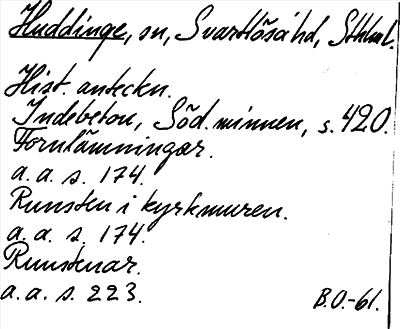 Huddinge, sn, Svartlösa hd, Sthlm.
Hist. anteckn.
Indebetou, Söd. minnen, s. 420.
Fornlämningar.
a. a. s. 174.
Runsten i kyrkmuren.
a. a. s. 174.
Runstenar.
a. a. s. 223.
B.O.-61.